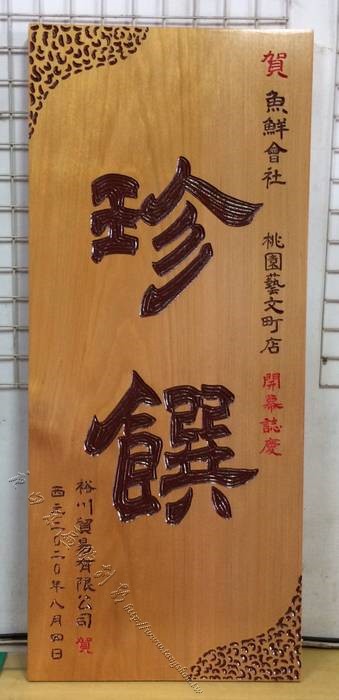 賀 魚鮮會社 桃園藝文町店 開幕誌慶
珍饌
裕川貿易有限公司 賀
西元二〇二〇年八月四日